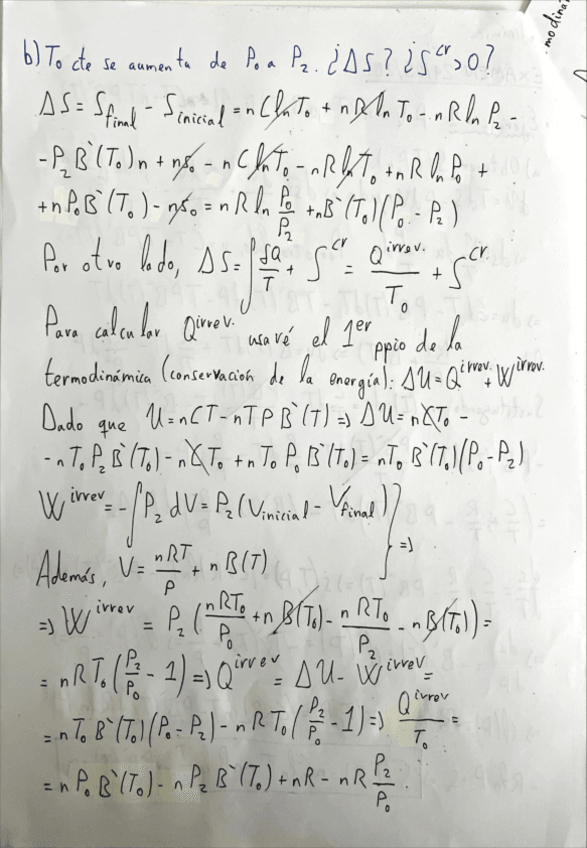 modiná
b) T₀ cte se aumenta de P₀ a P₂. ¿ΔS? ¿S^cr > 0?
ΔS = S_final - S_inicial = nC ln T₀ + nR ln T₀ - nR ln P₂ -
- P₂B`(T₀)n + ns₀ - nC ln T₀ - nR ln T₀ + nR ln P₀ +
+ nP₀B`(T₀) - ns₀ = nR ln P₀/P₂ + nB`(T₀)(P₀ - P₂)
Por otro lado, ΔS = ∫δQ/T + S^cr = Q^irrev./T₀ + S^cr.
Para calcular Q^irrev. usaré el 1er ppio de la
termodinámica (conservación de la energía): ΔU = Q^irrev. + W^irrev.
Dado que U = nCT - nTPB`(T) ⇒ ΔU = nCT₀ -
- nT₀P₂B`(T₀) - nCT₀ + nT₀P₀B`(T₀) = nT₀B`(T₀)(P₀ - P₂)
W^irrev = -∫P₂dV = P₂(V_inicial - V_final) } ⇒
Además, V = nRT/P + nB(T)
⇒ W^irrev = P₂(nRT₀/P₀ + nB(T₀) - nRT₀/P₂ - nB(T₀)) =
= nRT₀(P₂/P₀ - 1) ⇒ Q^irrev = ΔU - W^irrev =
= nT₀B`(T₀)(P₀ - P₂) - nRT₀(P₂/P₀ - 1) ⇒ Q^irrev/T₀ =
= nP₀B`(T₀) - nP₂B`(T₀) + nR - nR P₂/P₀.